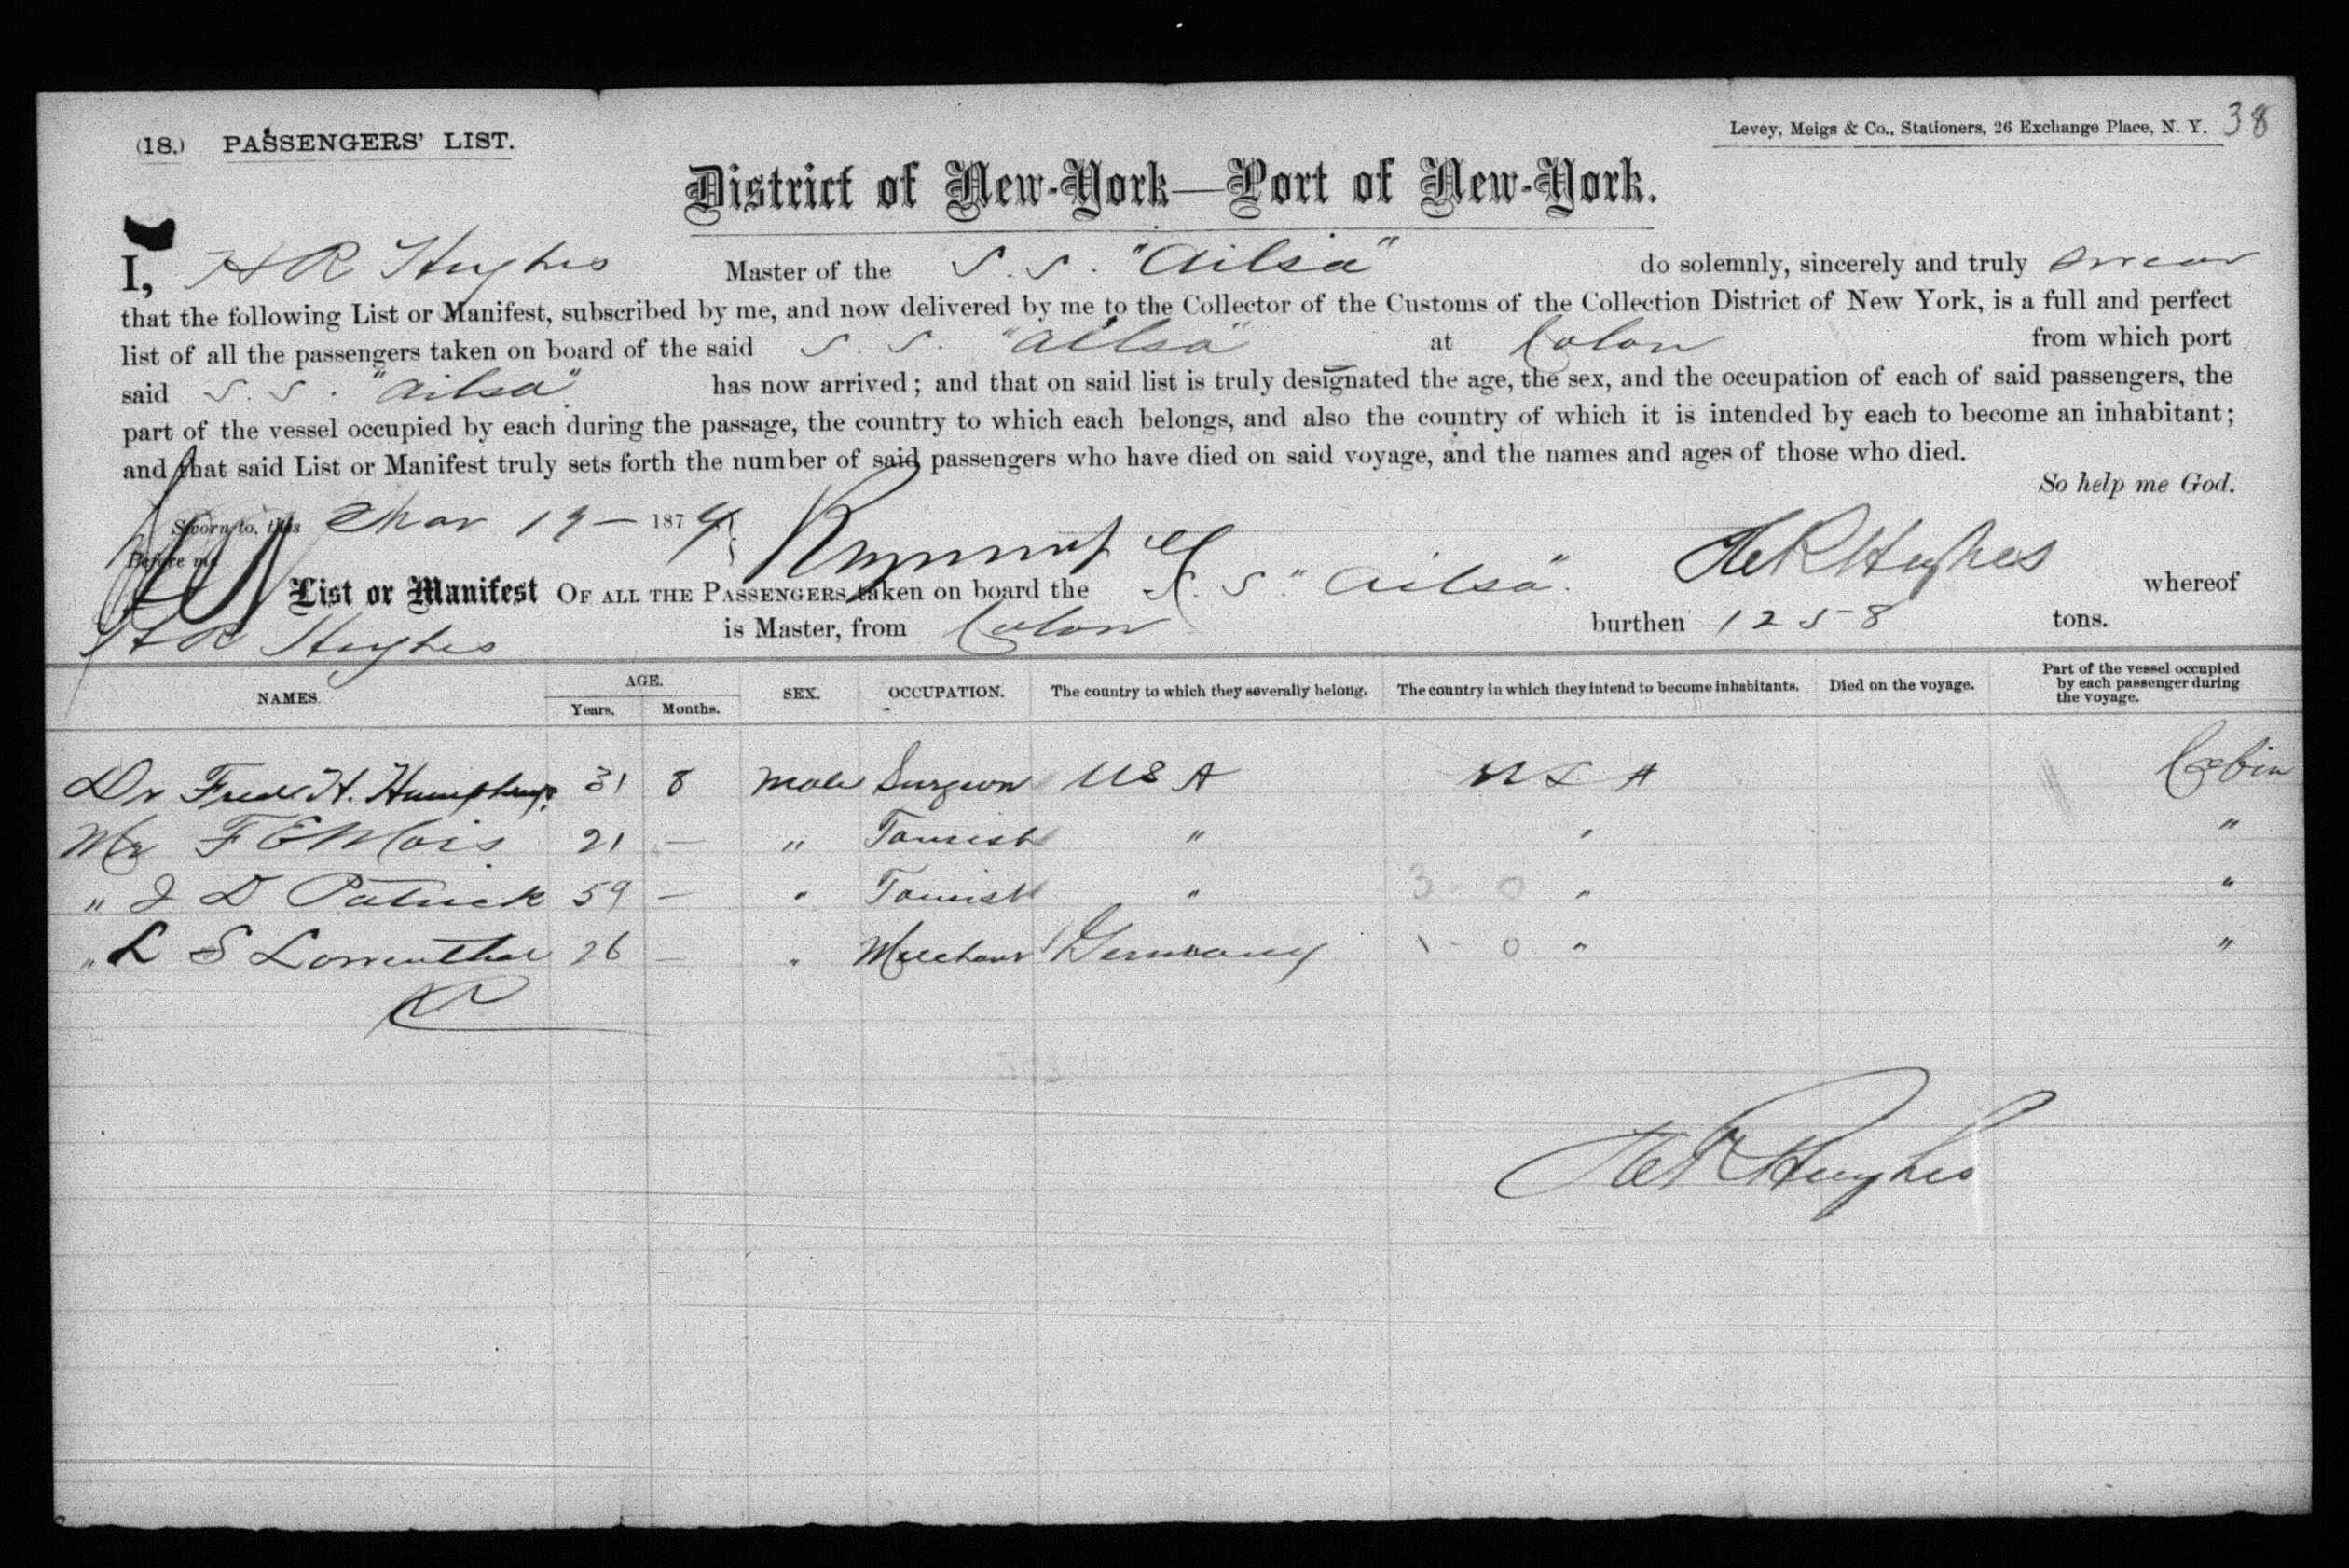 (18.) PASSENGERS' LIST.
Levey, Meigs & Co., Stationers, 26 Exchange Place, N. Y. 38
District of New-York—Port of New-York.
I, H R Hughes Master of the S. S. "Ailsa" do solemnly, sincerely and truly swear
that the following List or Manifest, subscribed by me, and now delivered by me to the Collector of the Customs of the Collection District of New York, is a full and perfect
list of all the passengers taken on board of the said S. S. "Ailsa" at Colon from which port
said S. S. "Ailsa" has now arrived; and that on said list is truly designated the age, the sex, and the occupation of each of said passengers, the
part of the vessel occupied by each during the passage, the country to which each belongs, and also the country of which it is intended by each to become an inhabitant;
and that said List or Manifest truly sets forth the number of said passengers who have died on said voyage, and the names and ages of those who died.
So help me God.
Sworn to, this Mar 19 – 1879
Before me
H R Hughes
List or Manifest OF ALL THE PASSENGERS taken on board the S. S. "Ailsa" whereof
H R Hughes is Master, from Colon burthen 1258 tons.
NAMES. AGE. Years. Months. SEX. OCCUPATION. The country to which they severally belong. The country in which they intend to become inhabitants. Died on the voyage. Part of the vessel occupied by each passenger during the voyage.
Dr Fred H. Humphreys 31 8 Male Surgeon U S A U S A Cabin
Mr F E 21 — " Tourist " " "
" J D Patrick 59 — " Tourist " 3 - 0 " "
" L S Lowenthal 26 — " Merchant Germany 1 - 0 " "
H R Hughes